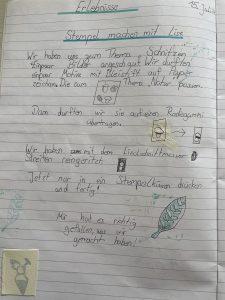 Erlebnisse
15. Juli
Stempel machen mit Lisa
Wir haben uns zum Thema Schnitzen
Bilder angeschaut. Wir durften
Motive mit Bleistift auf Papier
zeichnen. Die zum Thema Natur passen.
Dann durften wir sie auf einen Radiergummi
übertragen.
Wir haben mit dem Linolschnittmesser
Streifen reingeritzt
Jetzt nur in ein Stempelkissen drücken
und fertig!
Mir hat es richtig
gefallen, was wir
gemacht haben!